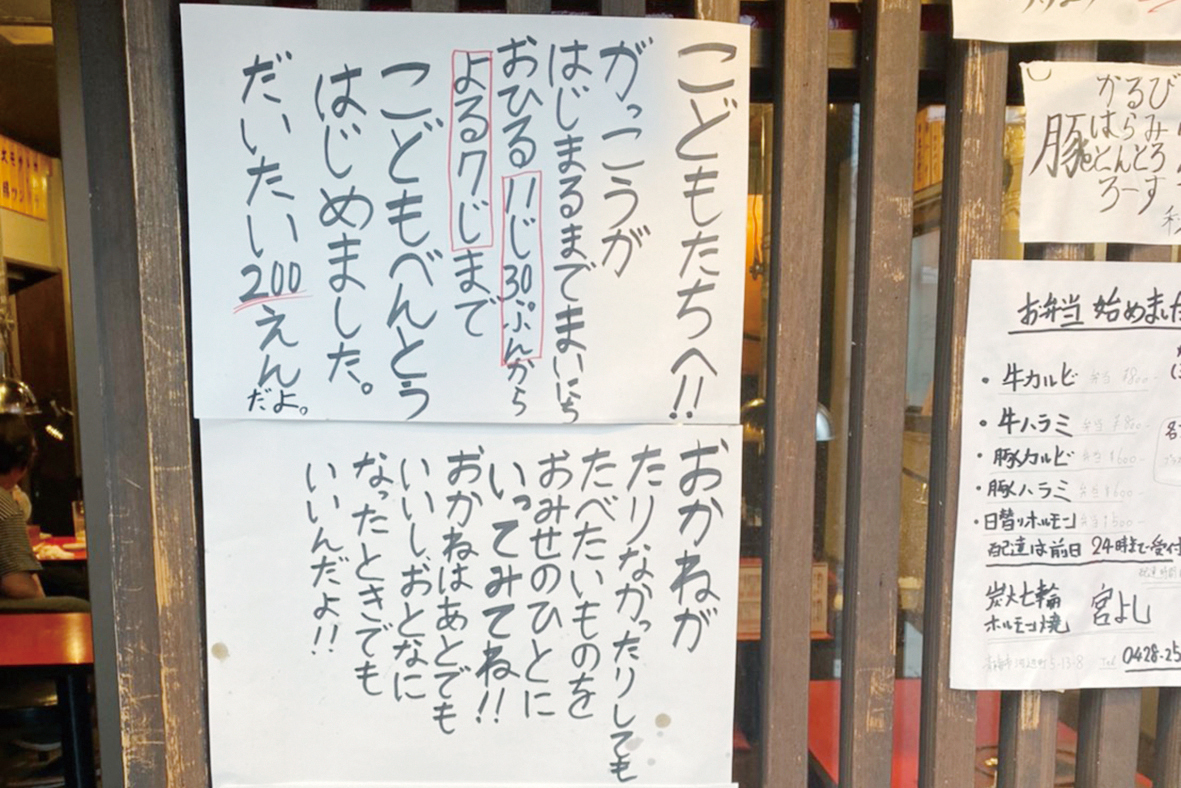 こどもたちへ!!
がっこうが
はじまるまでまいにち
おひる11じ30ぷんから
よる7じまで
こどもべんとう
はじめました。
だいたい200えんだよ。
おかねが
たりなかったりしても
たべたいものを
おみせのひとに
いってみてね!!
おかねはあとでも
いいし、おとなに
なったときでも
いいんだよ!!
かるび
豚はらみ
とんとろ
ろーす
お弁当 始めました
・牛カルビ 弁当 ¥800-
・牛ハラミ 弁当 ¥800-
・豚カルビ 弁当 ¥600-
・豚ハラミ 弁当 ¥600-
・日替りホルモン 弁当 ¥500-
配達は前日 24時まで受付
炭火七輪
ホルモン焼 宮よし
Tel 0428-25